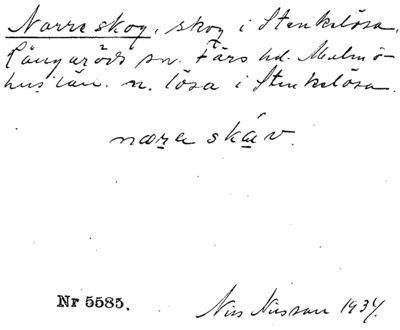 Norreskog, skog i Stenkelösa,
Långaröds sn. Färs hd. Malmö-
hus län. n. lösa i Stenkelösa.
nœra skáv
Nr 5585.
Nils Nilsson 1934.